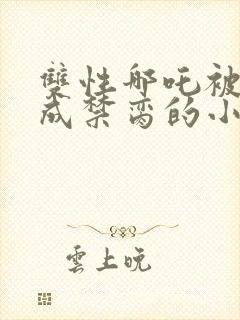 雙性哪吒被
成禁脔的小
雲上晚